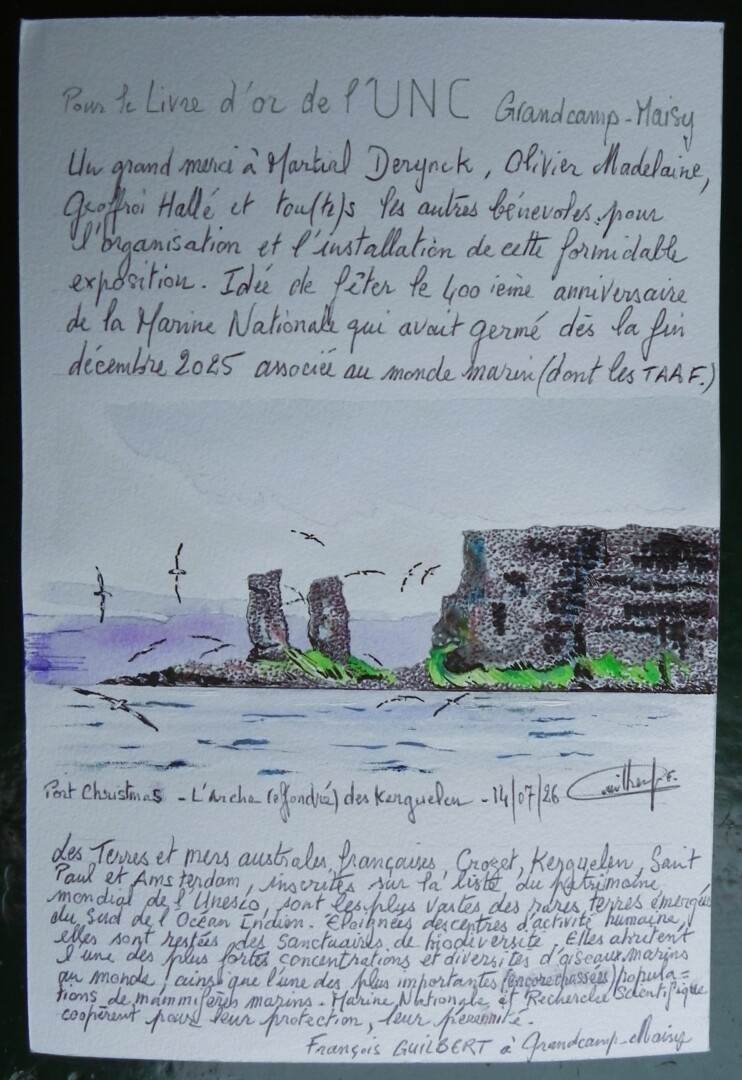 Pour le Livre d'or de l'UNC Grandcamp-Maisy
Un grand merci à Martial Derynck, Olivier Madelaine,
Geoffroi Hallé et tou(te)s les autres bénévoles pour
l'organisation et l'installation de cette formidable
exposition. Idée de fêter le 400 ième anniversaire
de la Marine Nationale qui avait germé dès la fin
décembre 2025 associée au monde marin (dont les TAAF.)
Port Christmas - L'Arche (effondrée) des Kerguelen - 14/07/26 Guilbert F.
Les Terres et mers australes françaises, Crozet, Kerguelen, Saint
Paul et Amsterdam, inscrites sur la liste du patrimoine
mondial de l'Unesco, sont les plus vastes des rares terres émergées
du Sud de l'Océan Indien. Eloignées des centres d'activité humaine,
elles sont restées des sanctuaires de biodiversité. Elles abritent
l'une des plus fortes concentrations et diversités d'oiseaux marins
au monde, ainsi que l'une des plus importantes (encore chassées) popula=
tions de mammifères marins. Marine Nationale et Recherche Scientifique
coopèrent pour leur protection, leur pérennité.
François GUILBERT à Grandcamp-Maisy